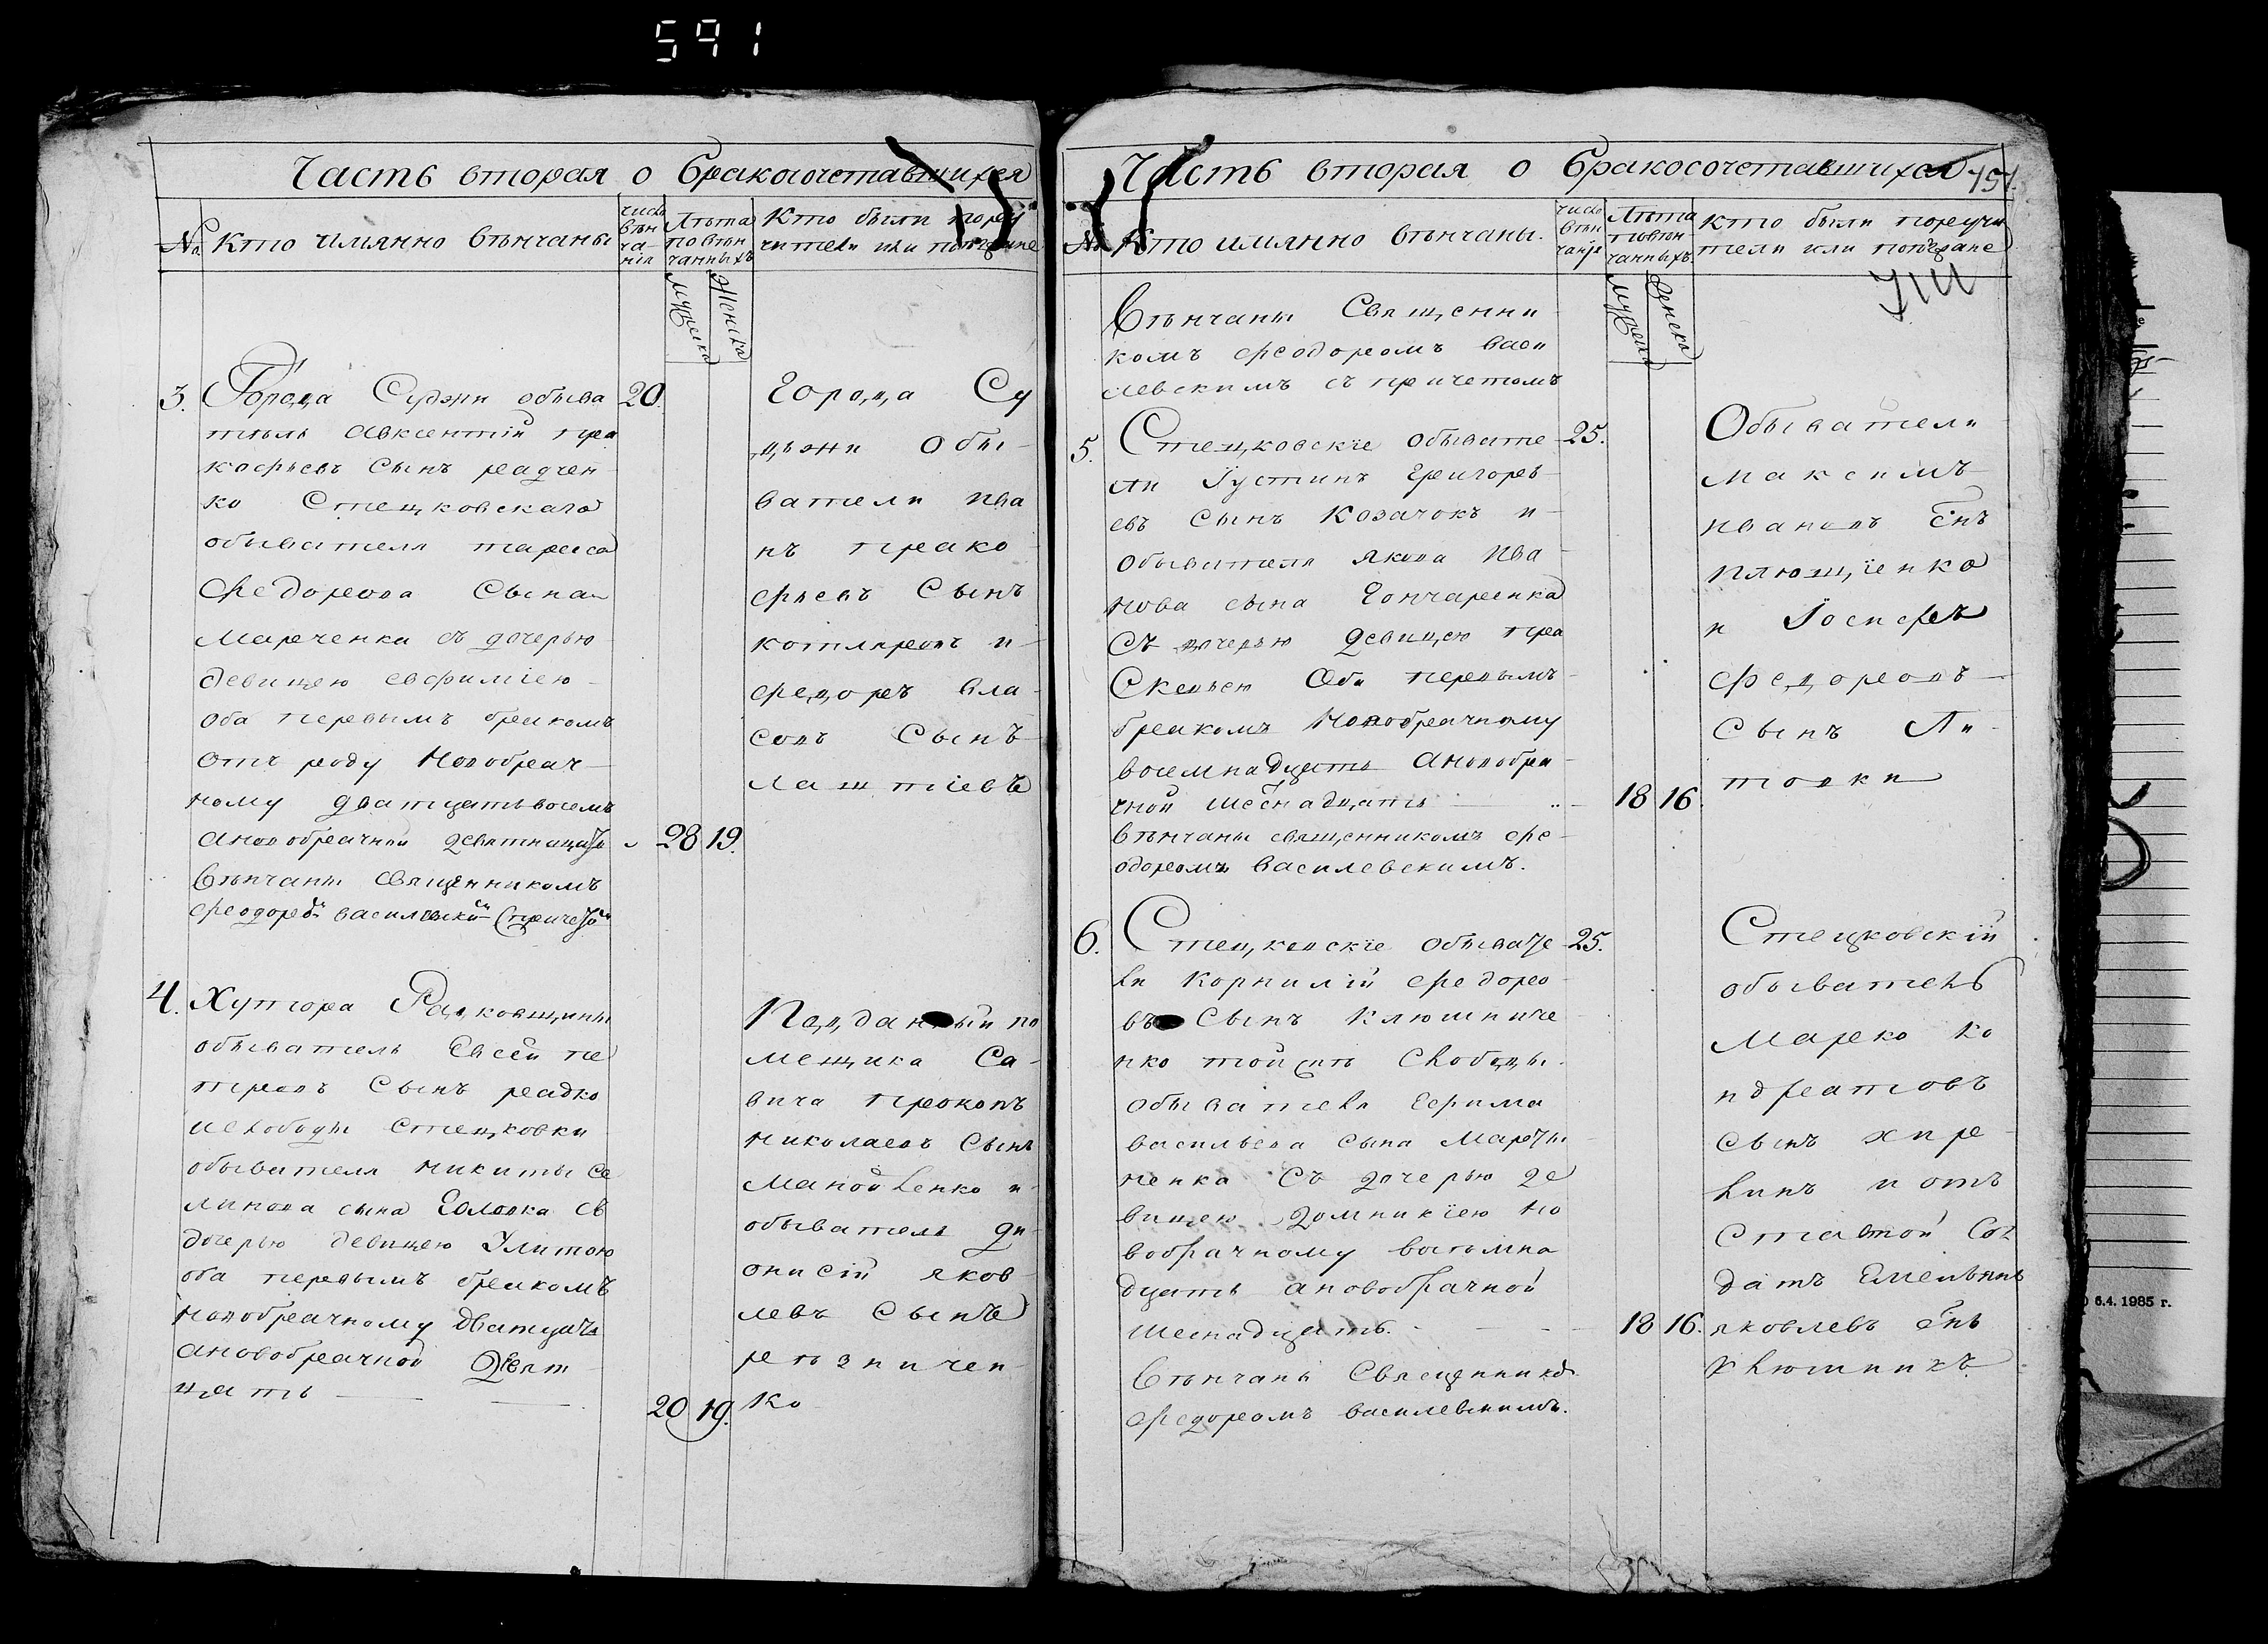 591
Часть вторая о бракосочетавшихся
№
Кто имянно венчаны
число
вѣн
ча-
нія
Лѣта
повѣн
чанныхъ
мужеска
женска
Кто были пору
чители или поезжане
3.
Города Суджи обыва
20.
тель Авксентій Про
кофьевъ сынъ радчен
ко Стецковскаго
обывателя тараса
Федорова сына
Марченка съ дочерью
девицею евфиміею
оба первымъ бракомъ
отъ роду новобрач
ному дватцать восемъ
а новобрачной девятнацать
28 19.
Вѣнчаны священникомъ
Города Су
джи обы-
ватели ива
нъ проко
фьевъ сынъ
котляровъ и
федоръ вла
совъ сынъ
4.
Хутора
обыватель Евсей пе
тровъ сынъ радко
и слободы Стецковки
обывателя никиты се
линова сына
дочерью девицею Улитою
оба первымъ бракомъ
новобрачному дватцать
а новобрачной девят
цать
20 19.
Подданный по
мещика Са-
вича прокопъ
николаевъ сынъ
и
обыватель ди
онисій яков
левъ сынъ
резничен
ко
Часть вторая о бракосочетавшихся
151.
№
Кто имянно вѣнчаны.
число
вѣн
чанія
Лѣта
повѣн
чанныхъ.
мужеска
женска
Кто были поручи
тели или поезжане
Вѣнчаны Священни
комъ феодоромъ васи
левскимъ съ причетомъ
5.
Стецковскіе обывате
25.
ли Іустинъ Григорев
евъ сынъ Козачокъ и
обывателя якова ива
нова сына Гончаренка
съ дочерью девицею пра
скевьею оба первымъ
бракомъ новобрачному
восемнадцать а новобра
чной шеснадцать
18 16.
вѣнчаны священникомъ фе
одоромъ василевскимъ.
Обыватели
максимъ
ивановъ снъ
плющіенко
и Іосифъ
федоровъ
сынъ Ли
товки
6.
Стецковскіе обывате
25.
ли корнилій федоро
въ сынъ клюшниче
нко той слободы
обывателя Ефима
васильева сына Марты
ненка съ дочерью де
вицею домникіею но
вобрачному восемна
дцать а новобрачной
шеснадцать.
18 16.
Вѣнчаны Священником
федоромъ василевскимъ.
Стецковскій
обыватель
Марко ко
ндратовъ
сынъ
и отъ
ставной Сол
датъ Емельянъ
яковлевъ снъ
Клюшникъ.
6.4.1985 г.